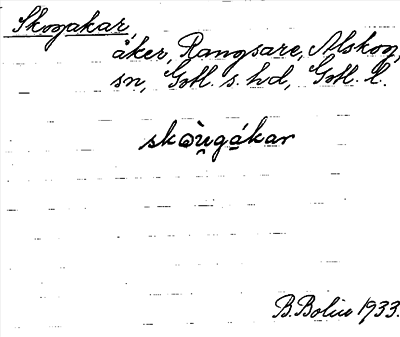 Skogakar,
åker, Rangsare, Alskog,
sn, Gotl. s. hd, Gotl. l.
skòu̯gákar
B. Bolin 1933.